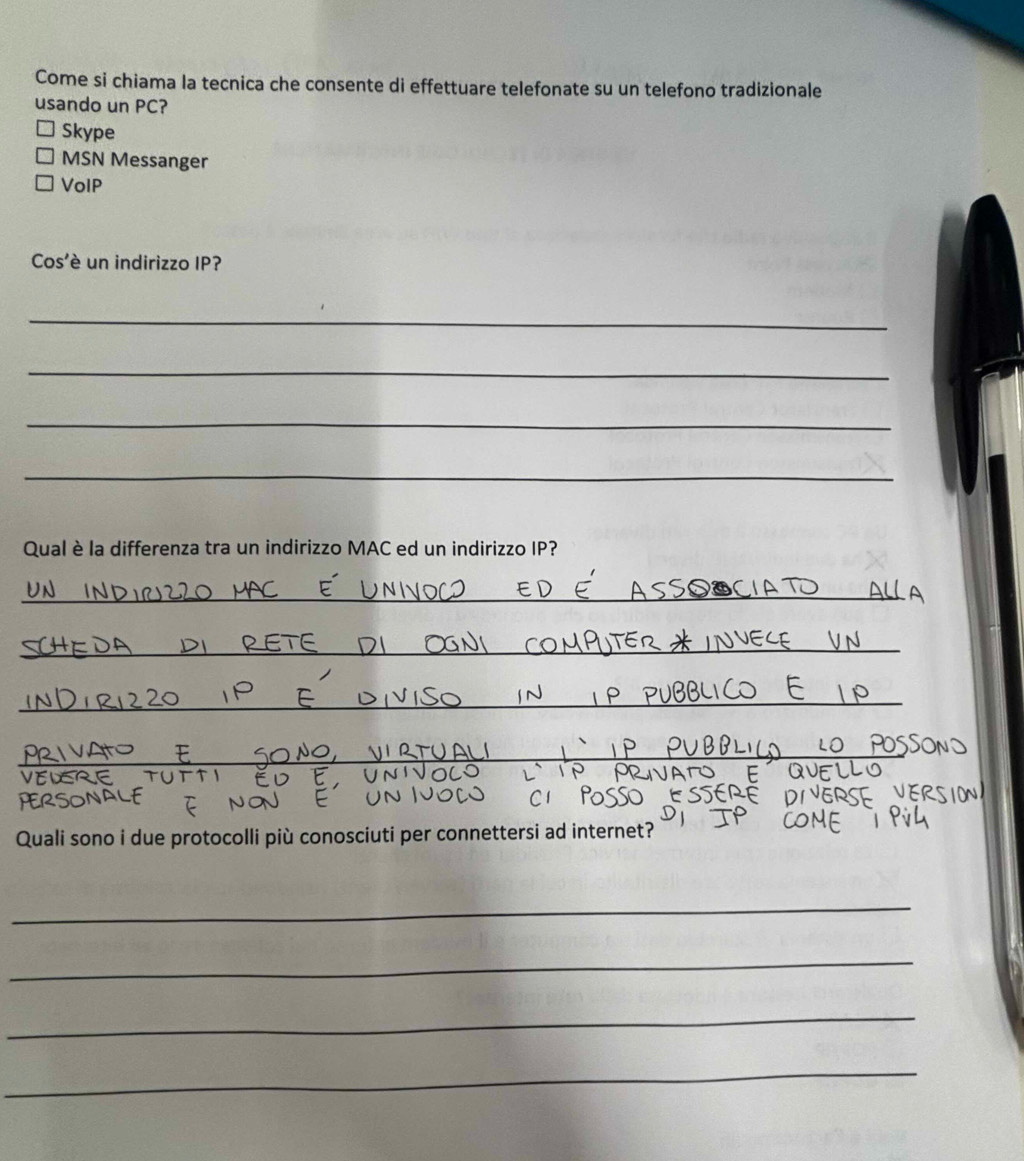 Come si chiama la tecnica che consente di effettuare telefonate su un telefono tradizionale
usando un PC?
☐ Skype
☐ MSN Messanger
☐ VoIP
Cos'è un indirizzo IP?
Qual è la differenza tra un indirizzo MAC ed un indirizzo IP?
UN INDIRIZZO MAC É UNIVOCO ED É ASSOCIATO ALLA
SCHEDA DI RETE DI OGNI COMPUTER * INVECE UN
INDIRIZZO IP É DIVISO IN IP PUBBLICO E IP
PRIVATO E SONO, VIRTUALI L' IP PUBBLICO LO POSSONO
VEDERE TUTTI ED É UNIVOCO L'IP PRIVATO E QUELLO
PERSONALE E NON É UNIVOCO CI POSSO ESSERE DIVERSE VERSIONI
DI IP COME IPV4
Quali sono i due protocolli più conosciuti per connettersi ad internet?